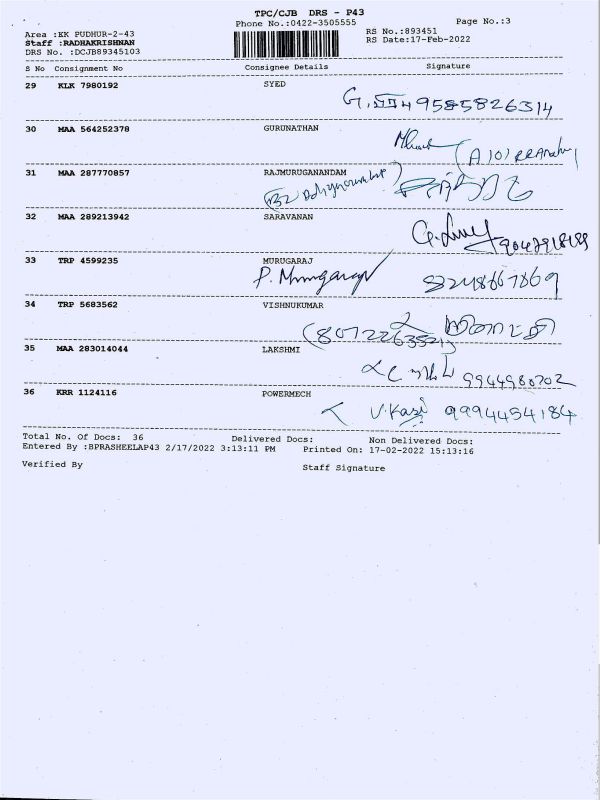 TPC/CJB DRS - P43
Phone No.:0422-3505555
Page No.:3
Area :KK PUDHUR-2-43
RS No.:893451
Staff :RADHAKRISHNAN
RS Date:17-Feb-2022
DRS No. :DCJB89345103
S No Consignment No Consignee Details Signature
29 KLK 7980192 SYED
9585826314
30 MAA 564252378 GURUNATHAN
31 MAA 287770857 RAJMURUGANANDAM
32 MAA 289213942 SARAVANAN
33 TRP 4599235 MURUGARAJ
P. Murugaraj
34 TRP 5683562 VISHNUKUMAR
35 MAA 283014044 LAKSHMI
9944980702
36 KRR 1124116 POWERMECH
9994454184
Total No. Of Docs: 36 Delivered Docs: Non Delivered Docs:
Entered By :BPRASHEELAP43 2/17/2022 3:13:11 PM Printed On: 17-02-2022 15:13:16
Verified By Staff Signature